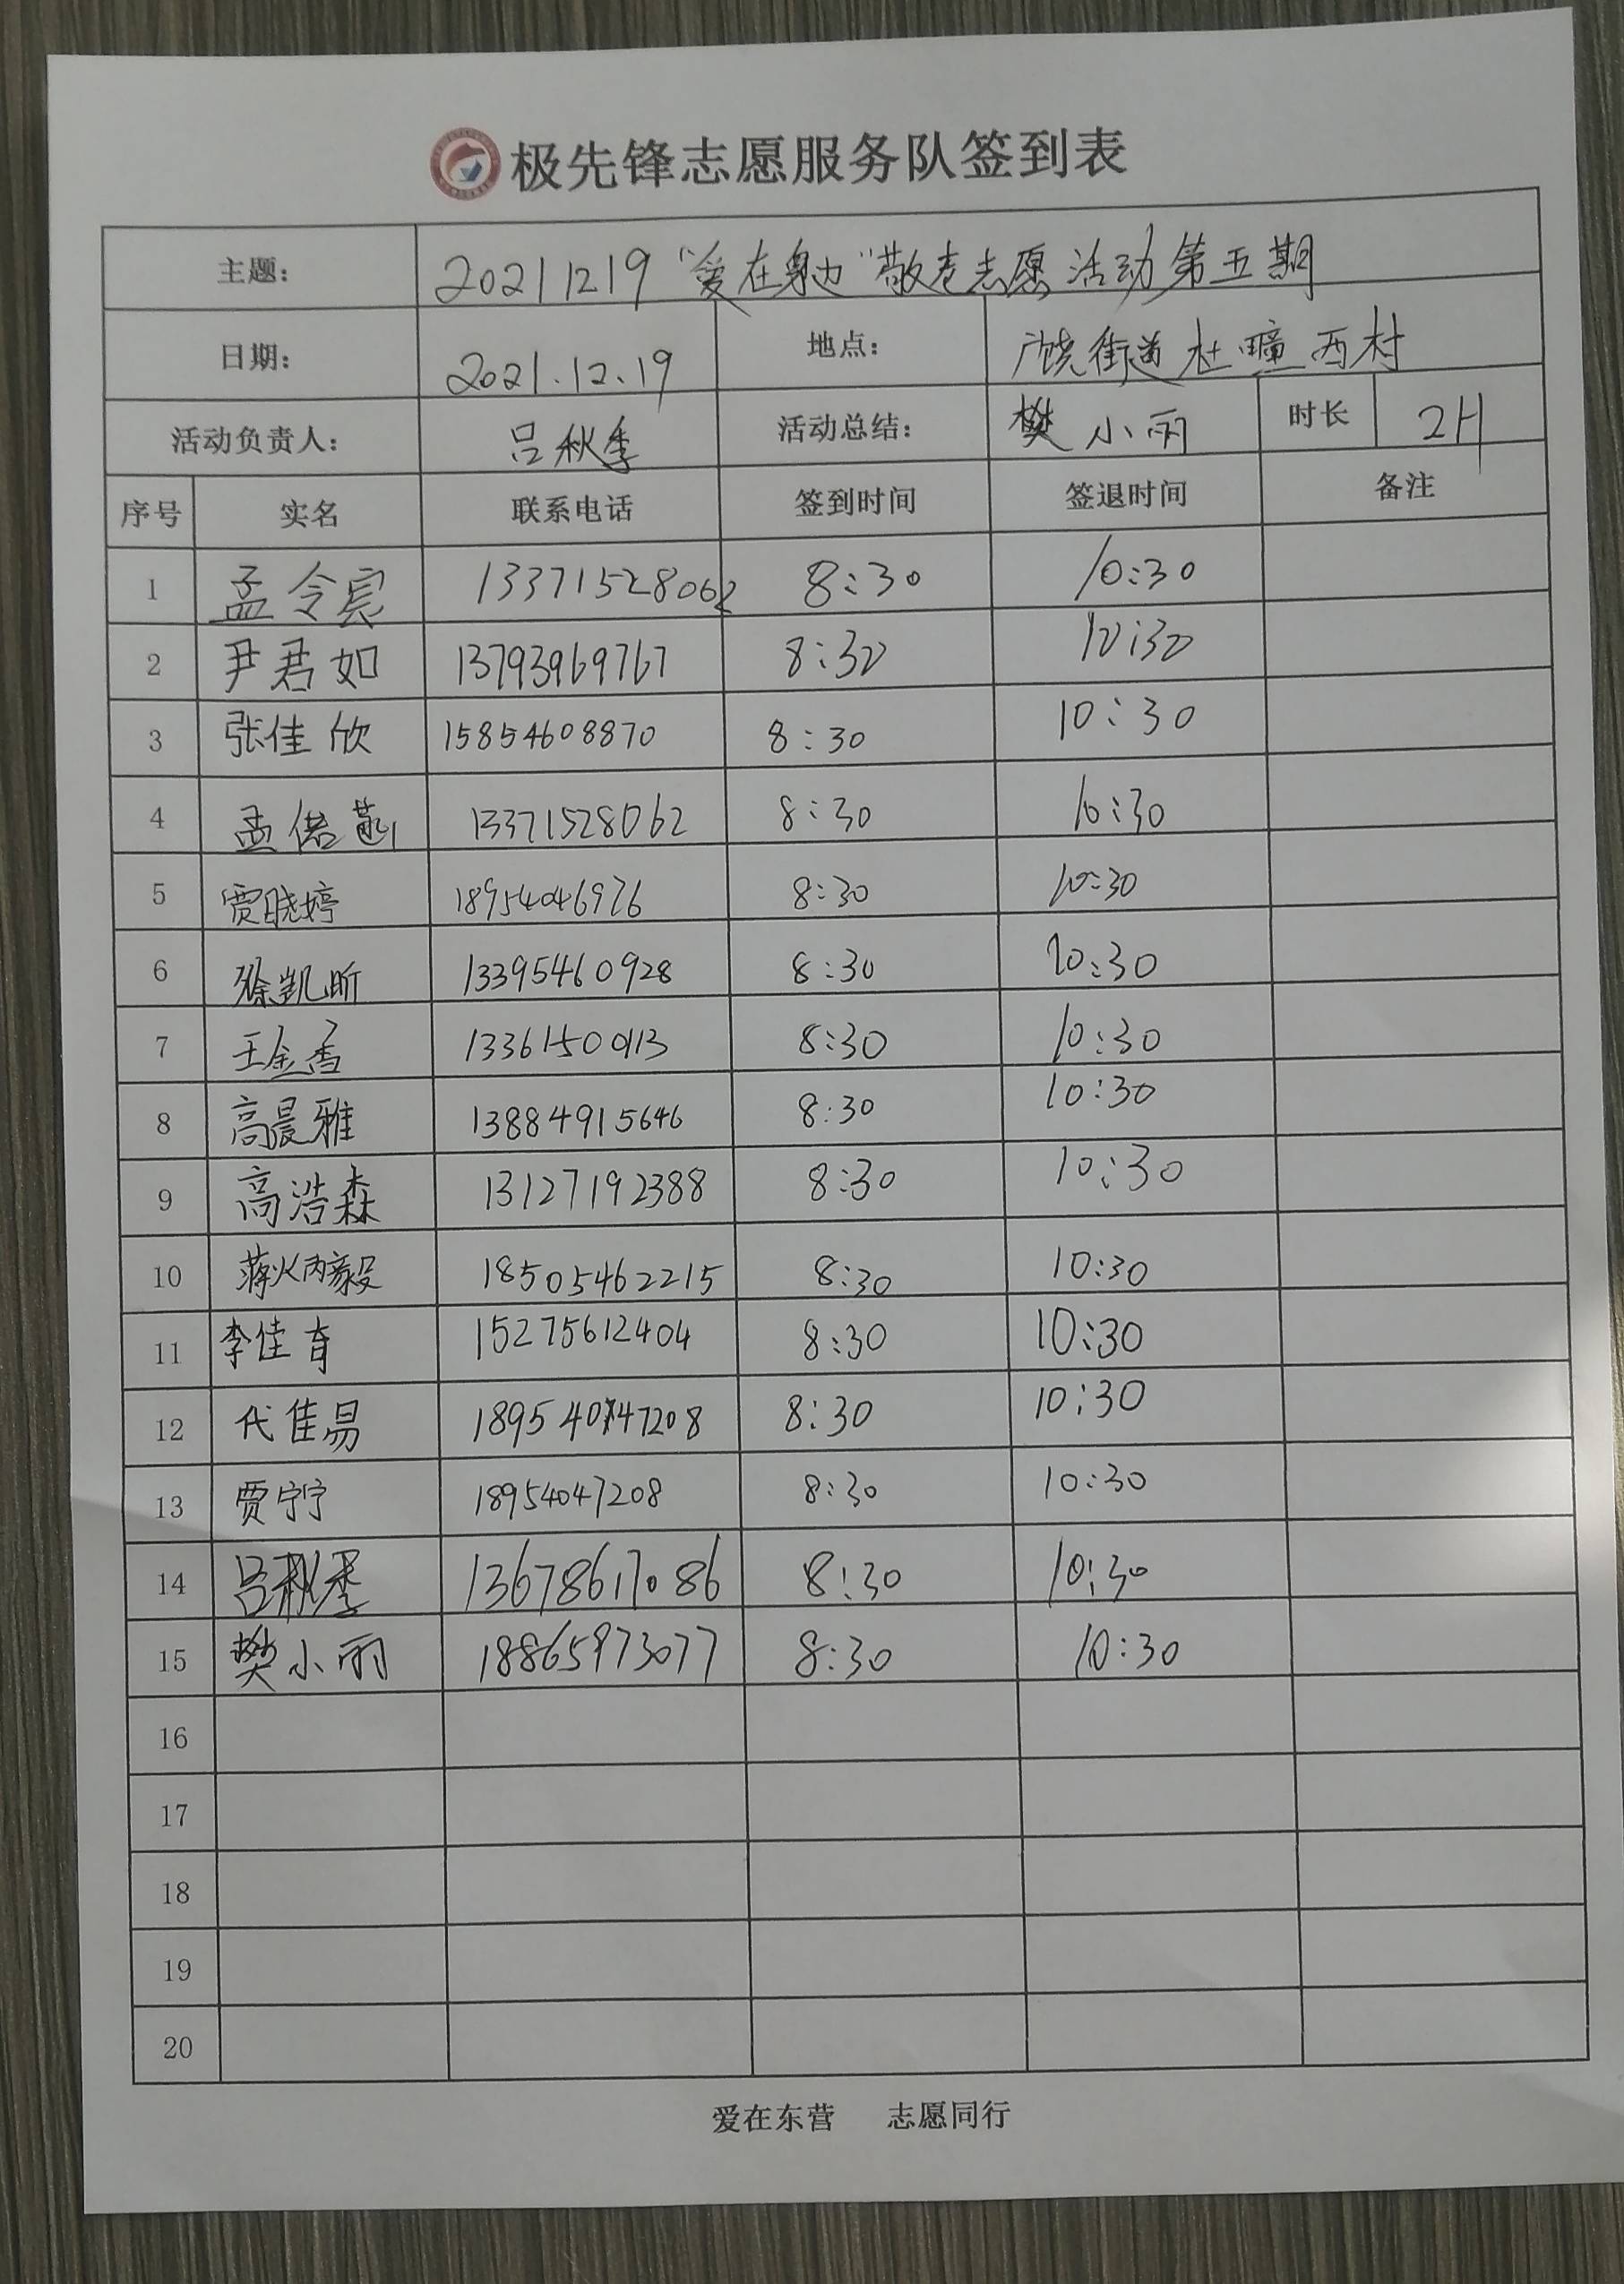 极先锋志愿服务队签到表
主题： 20211219 "爱在身边"敬老志愿活动第五期
日期： 2021.12.19 地点： 广饶街道杜疃西村
活动负责人： 吕秋季 活动总结： 樊小丽 时长 2H
序号 实名 联系电话 签到时间 签退时间 备注
1 孟令宾 13371528062 8:30 10:30
2 尹君如 13793969767 8:30 10:30
3 张佳欣 15854608870 8:30 10:30
4 孟偌 13371528062 8:30 10:30
5 贾晓婷 18954046976 8:30 10:30
6 徐凯昕 13395460928 8:30 10:30
7 王金香 13361500113 8:30 10:30
8 高晨雅 13884915646 8:30 10:30
9 高浩森 13127192388 8:30 10:30
10 蒋炳毅 18505462215 8:30 10:30
11 李佳育 15275612404 8:30 10:30
12 代佳易 18954047208 8:30 10:30
13 贾宁宁 18954047208 8:30 10:30
14 吕秋季 13678617086 8:30 10:30
15 樊小丽 18865973077 8:30 10:30
16
17
18
19
20
爱在东营 志愿同行